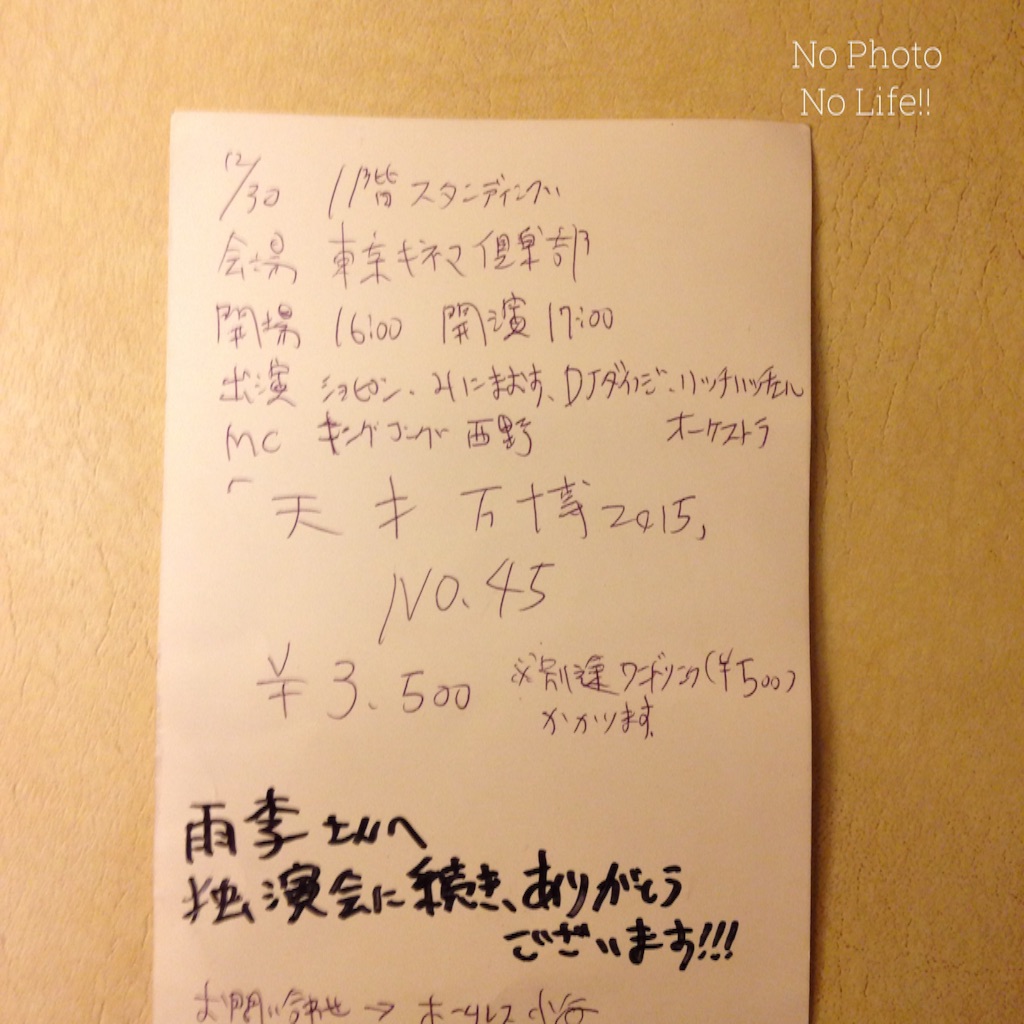 No Photo
No Life!!
12/30 1階 スタンディング
会場 東京キネマ倶楽部
開場 16:00 開演 17:00
出演 ショピン、サにまおす、DJダイノジ、ハッチハッチェル
オーケストラ
MC キングコング 西野
「天才万博2015」
NO.45
¥3.500 ※別途ワンドリンク(¥500)
かかります。
雨季さんへ
独演会に続き、ありがとう
ございます!!!
お問い合わせ → ホームレス小谷